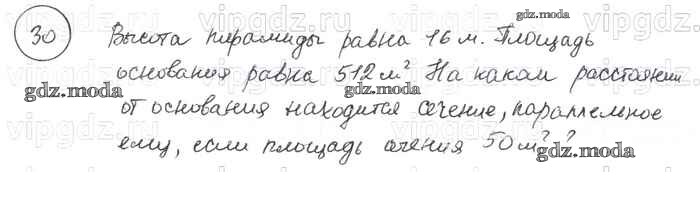 30 Высота пирамиды равна 16 м. Площадь
основания равна 512 м² На каком расстоянии
от основания находится сечение, параллельное
ему, если площадь сечения 50 м²?
gdz.moda
gdz.moda
gdz.moda
gdz.moda
gdz.moda
gdz.moda